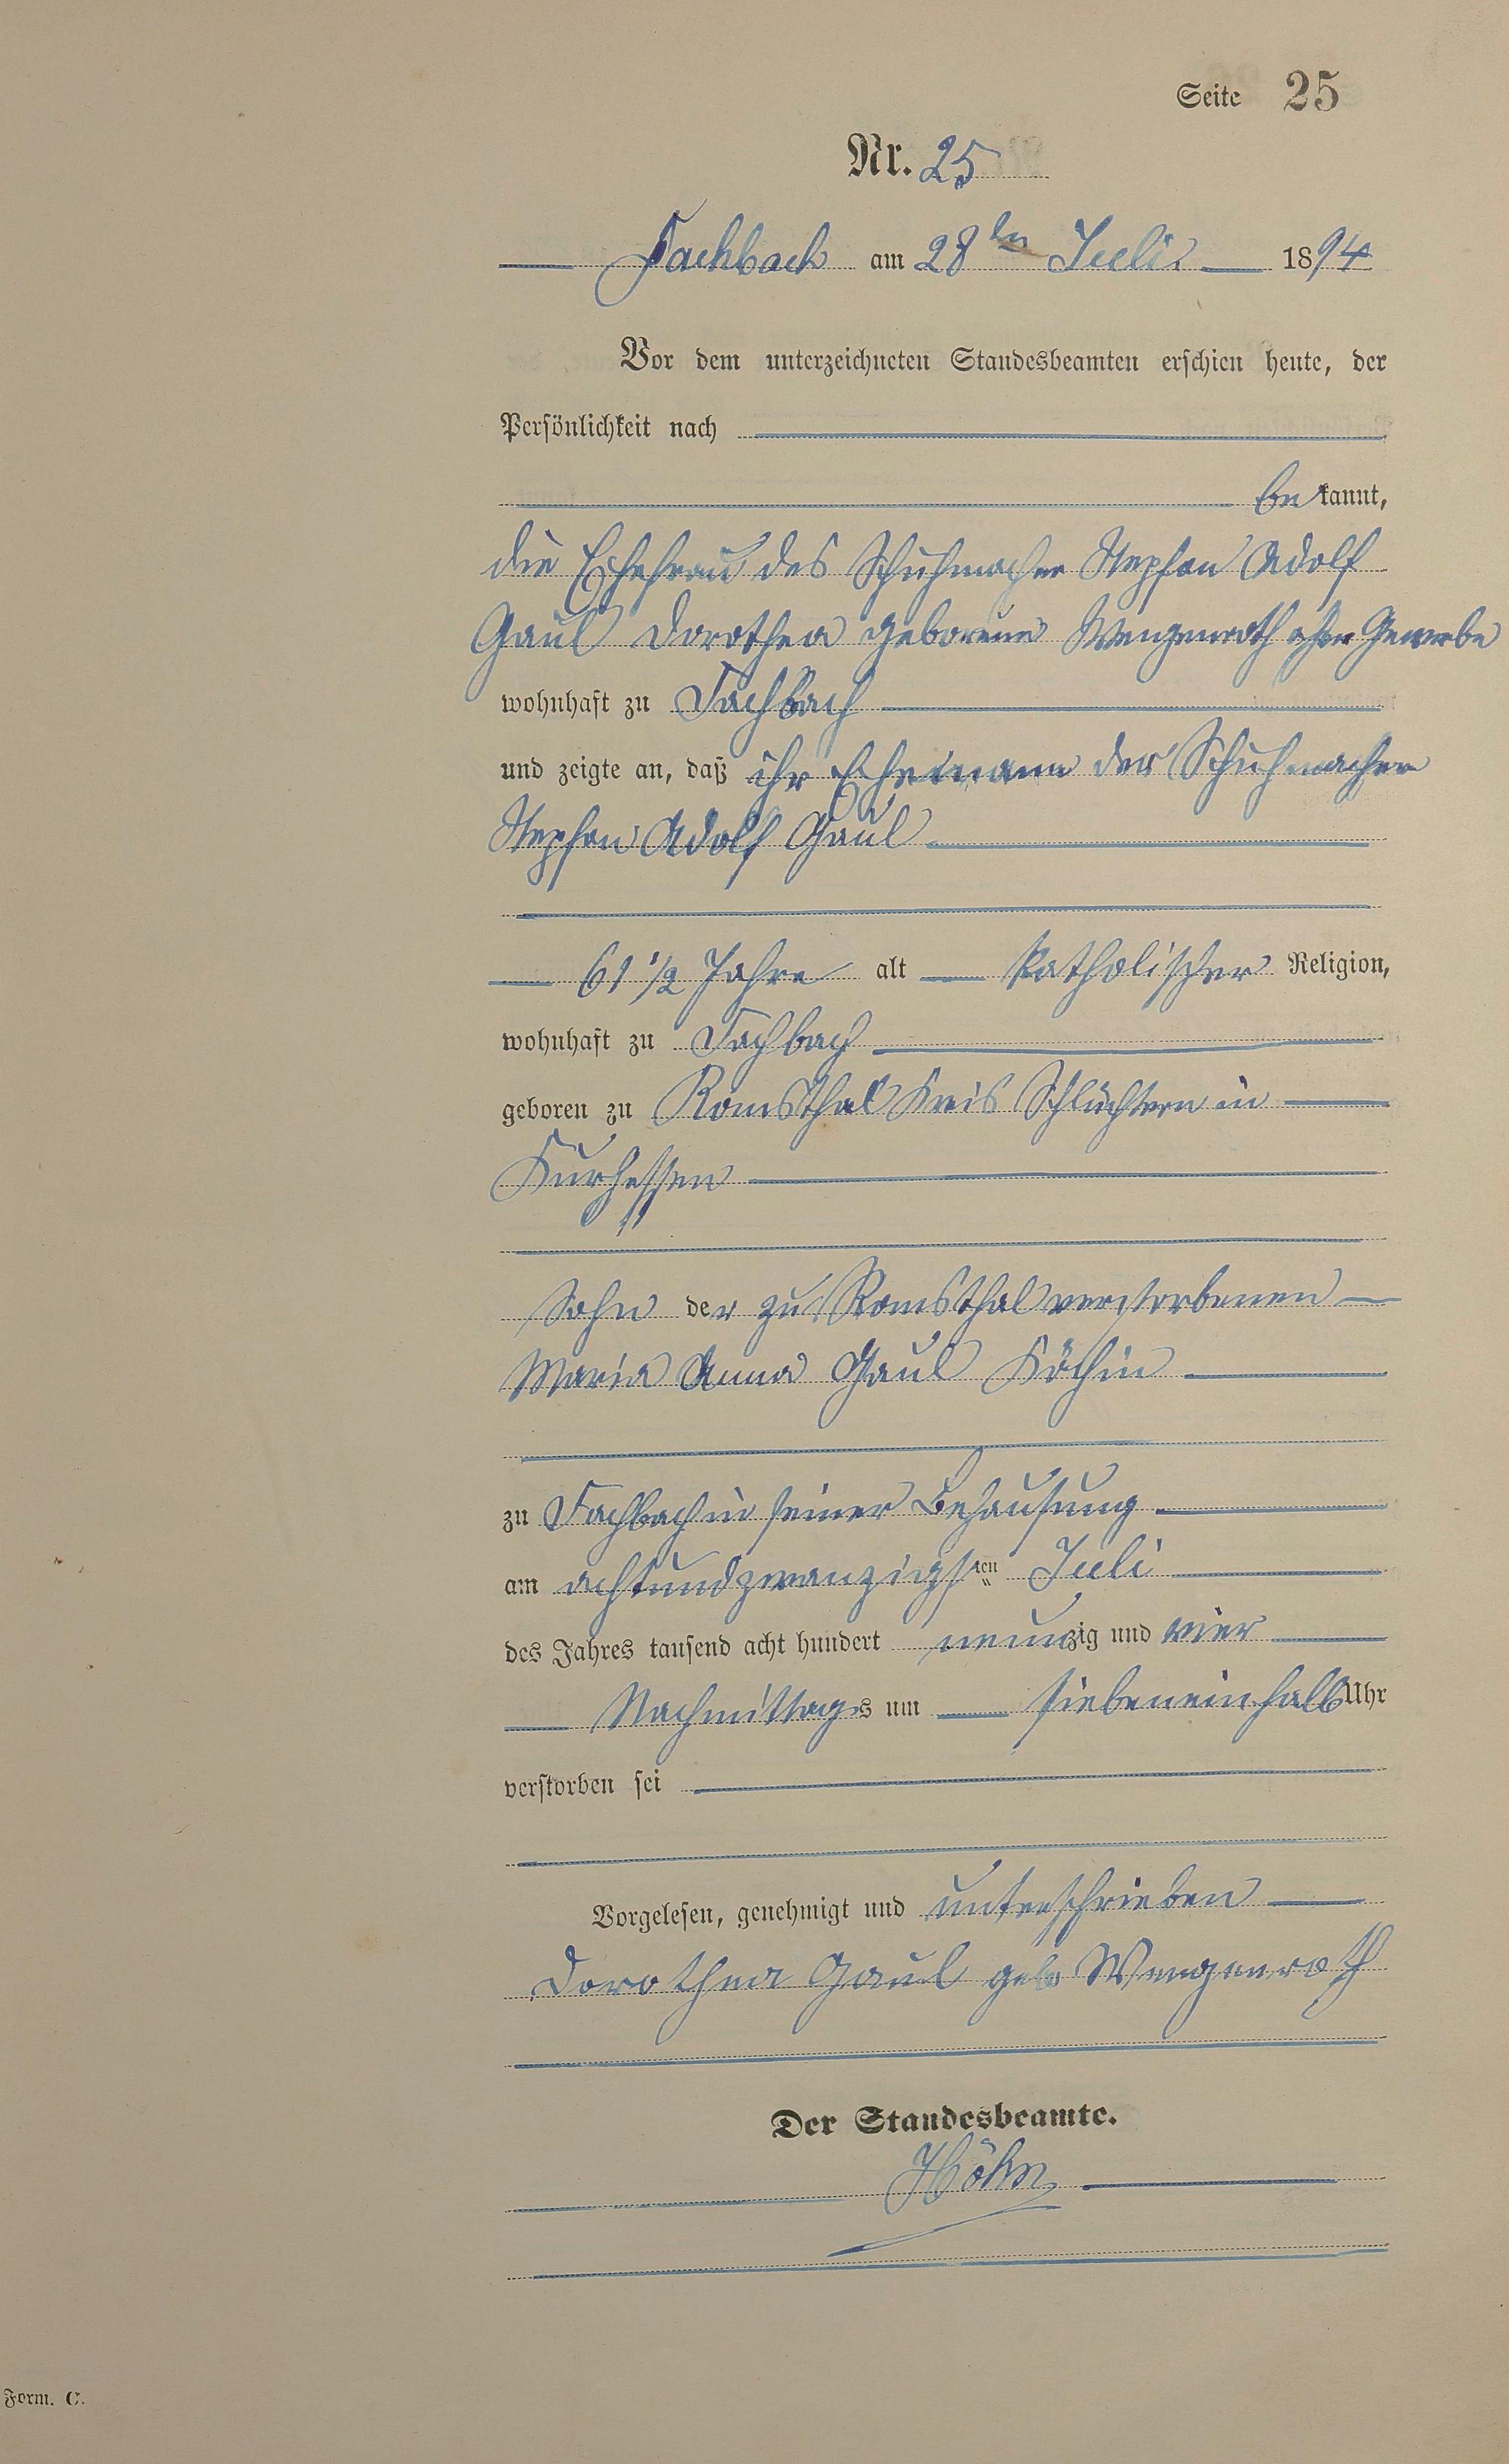 Seite 25
Nr. 25
Fachbach am 28ten Juli 1894
Vor dem unterzeichneten Standesbeamten erschien heute, der
Persönlichkeit nach
bekannt,
die Ehefrau des Schuhmacher Stephan Adolf
Gaul Dorothea geborene Wengenroth ohne Gewerbe
wohnhaft zu Fachbach
und zeigte an, daß ihr Ehemann der Schuhmacher
Stephan Adolf Gaul
61 1/2 Jahre alt katholischer Religion,
wohnhaft zu Fachbach
geboren zu Romsthal Kreis Schlüchtern in
Kurhessen
Sohn der zu Romsthal verstorbenen
Maria Anna Gaul Köchin
zu Fachbach in seiner Behausung
am achtundzwanzigsten Juli
des Jahres tausend acht hundert neunzig und vier
Nachmittags um siebeneinhalb Uhr
verstorben sei
Vorgelesen, genehmigt und unterschrieben
Dorothea Gaul geb Wengenroth
Der Standesbeamte.
Höhn
Form. C.